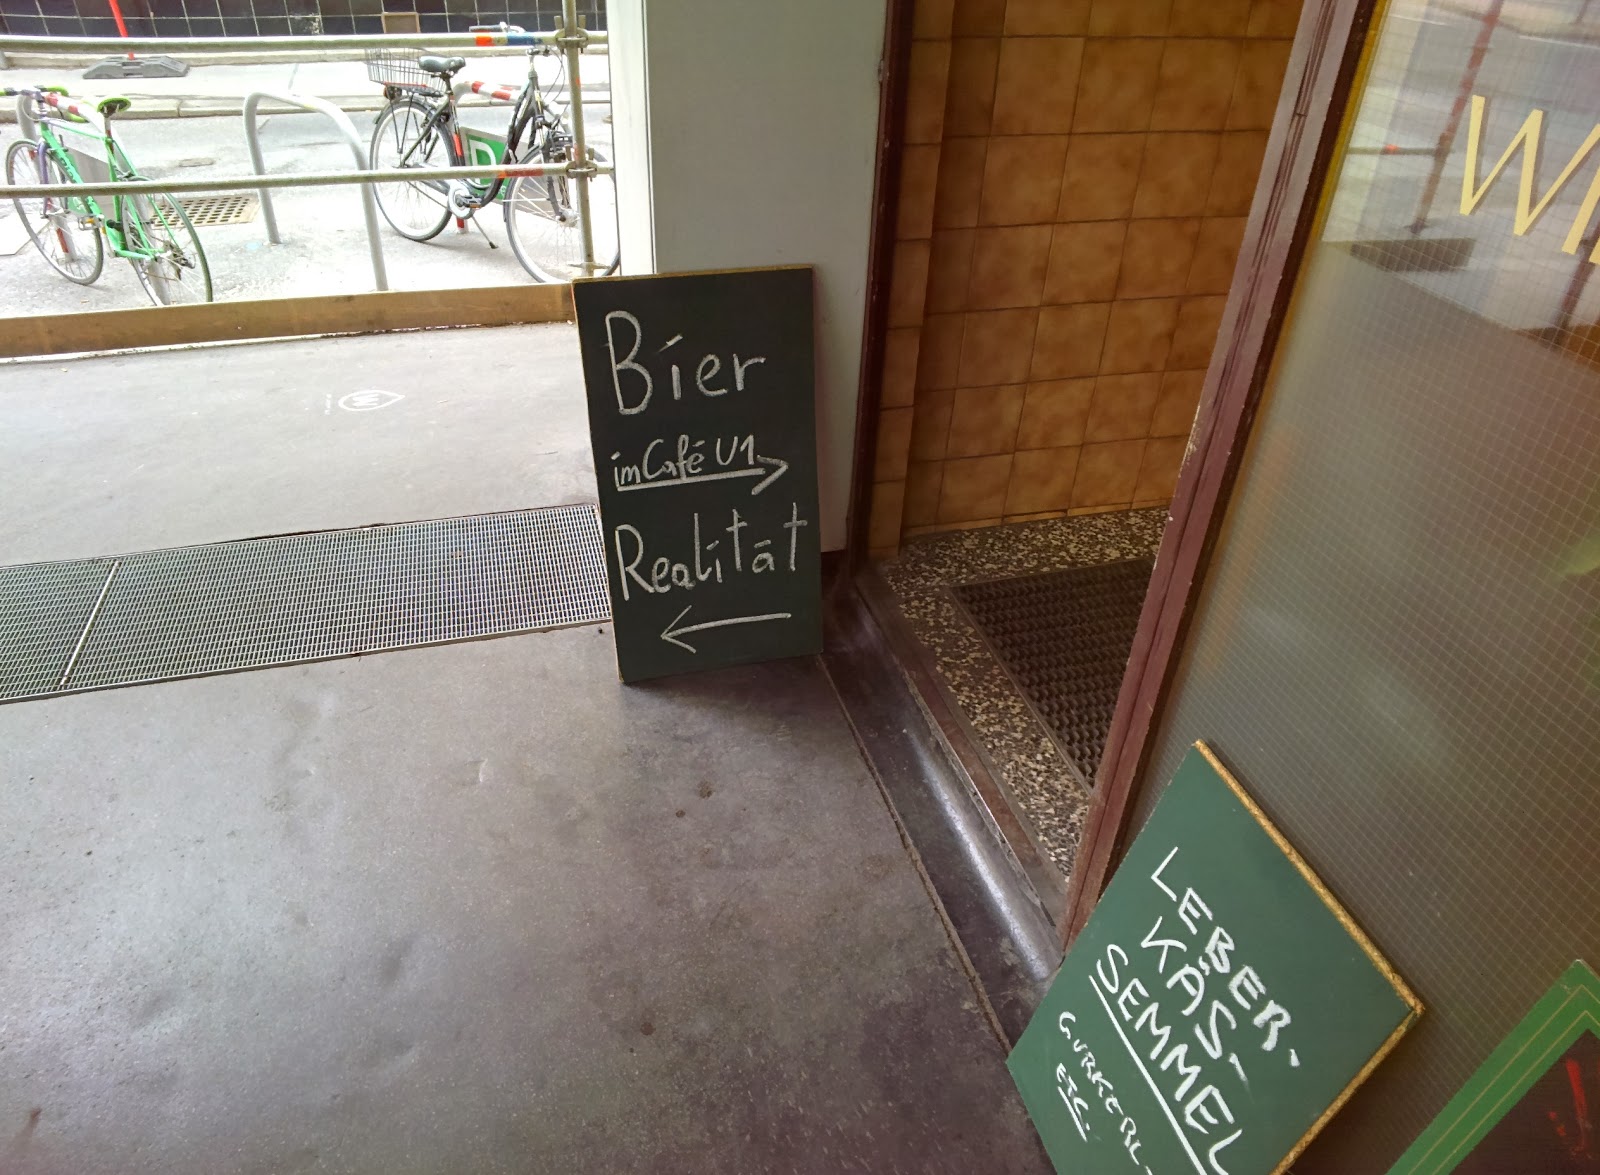 Bier
im Café U1
Realität
LEBER-
KÄS-
SEMMEL
GURKERL
ETC.